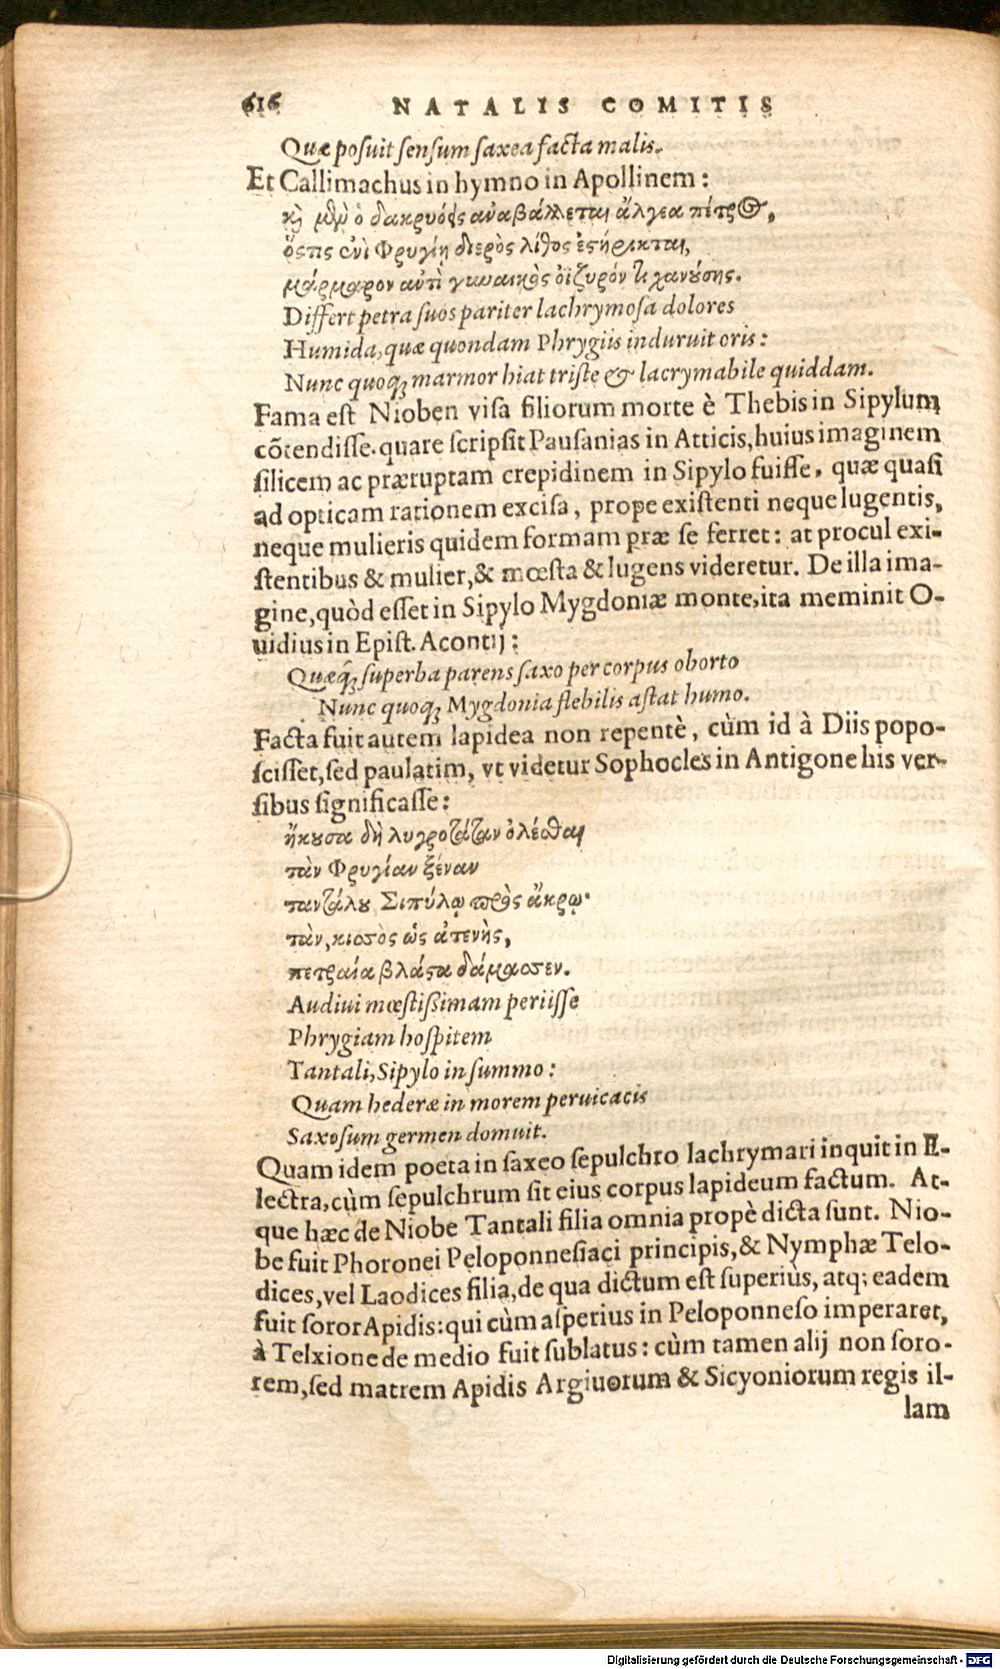 616 NATALIS COMITIS
Quæ posuit sensum saxea facta malis.
Et Callimachus in hymno in Apollinem:
καὶ μὲν ὁ δακρυόεις ἀναβάλλεται ἄλγεα πέτρος,
ὅστις ἐνὶ Φρυγίῃ διερὸς λίθος ἐστήρικται,
μάρμαρον ἀντὶ γυναικὸς ὀϊζυρόν τι χανούσης.
Differt petra suos pariter lachrymosa dolores
Humida, quæ quondam Phrygiis induruit oris:
Nunc quoq; marmor hiat triste & lacrymabile quiddam.
Fama est Nioben visa filiorum morte è Thebis in Sipylum
cõtendisse. quare scripsit Pausanias in Atticis, huius imaginem
silicem ac præruptam crepidinem in Sipylo fuisse, quæ quasi
ad opticam rationem excisa, prope existenti neque lugentis,
neque mulieris quidem formam præ se ferret: at procul exi-
stentibus & mulier, & mœsta & lugens videretur. De illa ima-
gine, quòd esset in Sipylo Mygdoniæ monte, ita meminit O-
uidius in Epist. Acontij:
Quæq; superba parens saxo per corpus oborto
Nunc quoq; Mygdonia flebilis astat humo.
Facta fuit autem lapidea non repentè, cùm id à Diis popo-
scisset, sed paulatim, vt videtur Sophocles in Antigone his ver-
sibus significasse:
ἤκουσα δὴ λυγροτάταν ὀλέσθαι
τὰν Φρυγίαν ξέναν
ταντάλου Σιπύλῳ πρὸς ἄκρῳ·
τὰν, κισσὸς ὡς ἀτενὴς,
πετραία βλάστα δάμασσεν.
Audiui mœstißimam periisse
Phrygiam hospitem
Tantali, Sipylo in summo:
Quam hederæ in morem peruicacis
Saxosum germen domuit.
Quam idem poeta in saxeo sepulchro lachrymari inquit in E-
lectra, cùm sepulchrum sit eius corpus lapideum factum. At-
que hæc de Niobe Tantali filia omnia propè dicta sunt. Nio-
be fuit Phoronei Peloponnesiaci principis, & Nymphæ Telo-
dices, vel Laodices filia, de qua dictum est superiùs, atq; eadem
fuit soror Apidis: qui cùm asperius in Peloponneso imperaret,
à Telxione de medio fuit sublatus: cùm tamen alij non soro-
rem, sed matrem Apidis Argiuorum & Sicyoniorum regis il-
lam
Digitalisierung gefördert durch die Deutsche Forschungsgemeinschaft - DFG